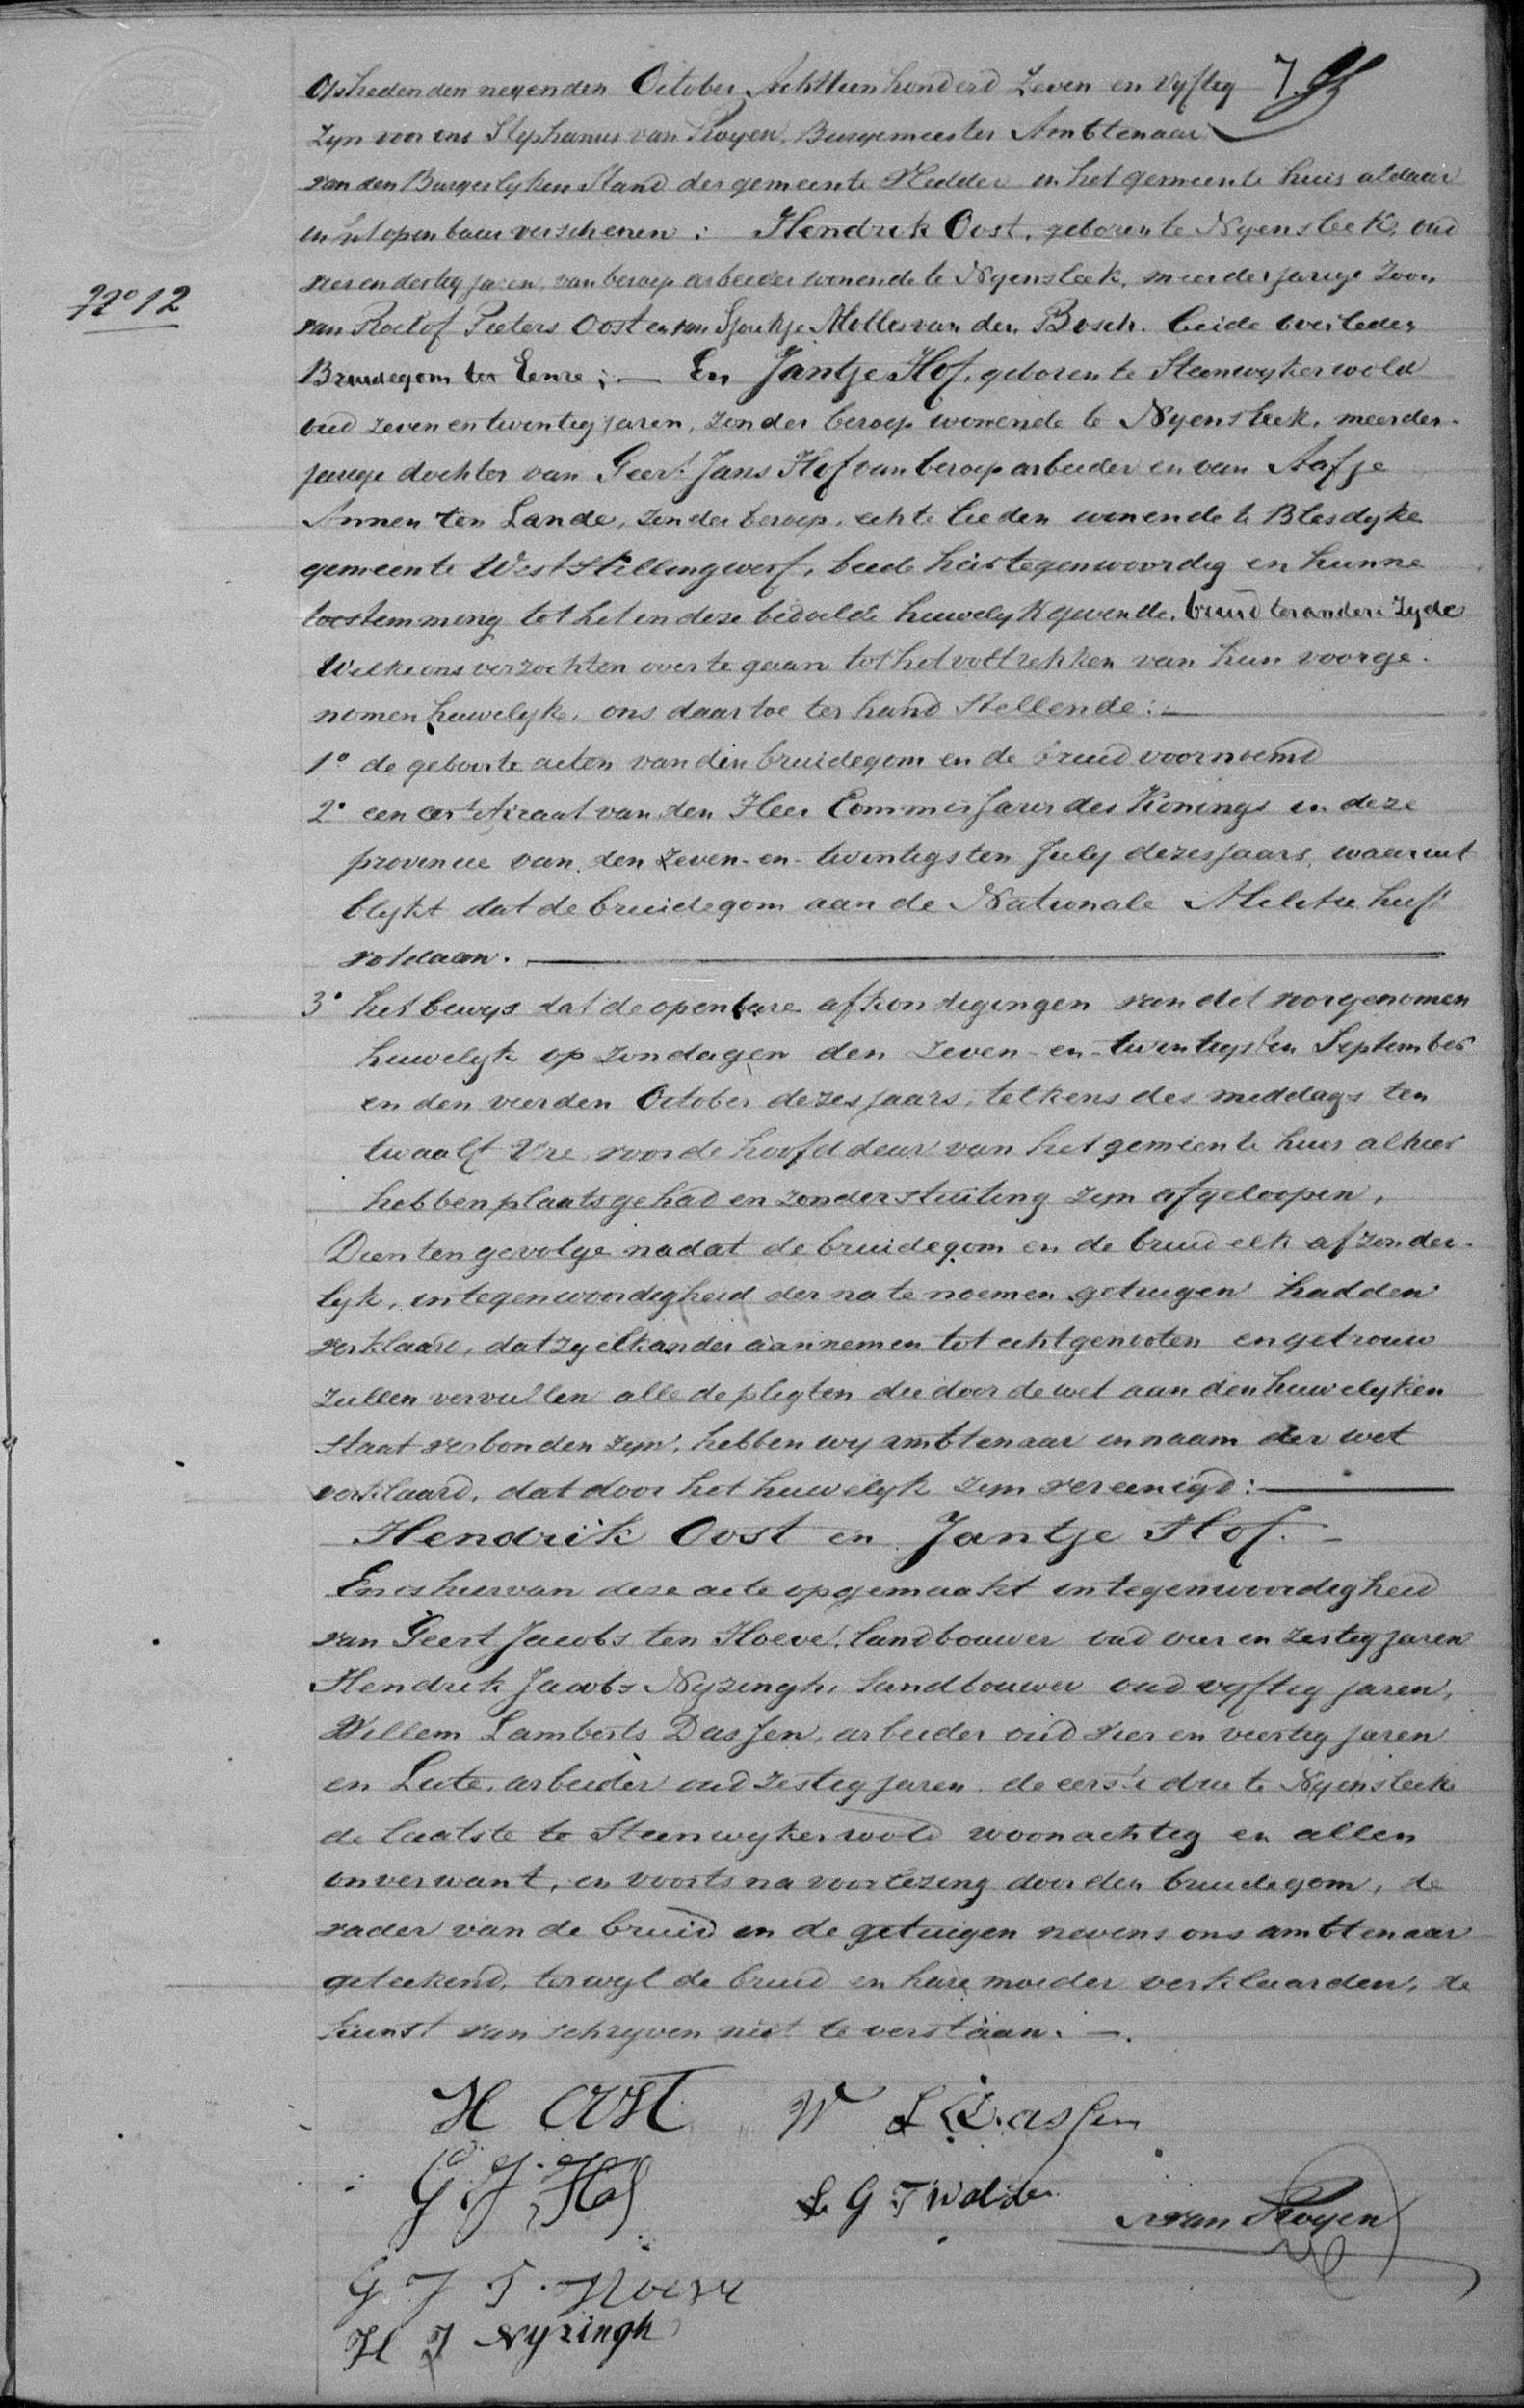 Op heden den negenden October Achttienhonderd Zeven en Vyftig 7.
Zyn voor ons Stephanus van Royen, Burgemeester Ambtenaar
van den Burgerlyken Stand der gemeente Vledder in het gemeente huis aldaar
in het openbaar verschenen: Hendrik Oost, geboren te Nyensleek, oud
vierendertig jaren, van beroep arbeider wonende te Nyensleek, meerderjarige zoon
No 12
van Roelof Pieters Oost en van Sjoukje Molles van den Bosch. beide overleden
Bruidegom ter Eenre; — En Jantje Hof, geboren te Steenwykerwold
oud zeven en twintig jaren, zonder beroep wonende te Nyensleek, meerder-
jarige dochter van Geert Jans Hof van beroep arbeider en van Aafje
Annen ten Lande, zonder beroep, echte lieden wonende te Blesdyke
gemeente West Stellingwerf, beide hier tegenwoordig en hunne
toestemming tot het in deze bedoelde huwelyk gevende, bruid ter andere Zyde
Welke ons verzochten over te gaan tot het voltrekken van hun voorge-
nomen huwelyke, ons daartoe ter hand stellende: —
1o de geboorte acten van den bruidegom en de bruid voornoemd
2o een certificaat van den Heer Commissaris des Konings in deze
provincie van den Zeven-en-twintigsten July dezes jaars, waaruit
blykt dat de bruidegom aan de Nationale Militie heeft
voldaan. —
3o het bewys dat de openbare afkondigingen van dit voorgenomen
huwelyk op zondagen den Zeven-en-twintigsten September
en den vierden October dezes jaars, telkens des middags ten
twaalf Ure voor de hoofd deur van het gemeente huis alhier
hebben plaats gehad en zonder stuiting zyn afgeloopen,
Dien ten gevolge nadat de bruidegom en de bruid elk afzonder-
lyk, in tegenwoordigheid der na te noemen getuigen hadden
verklaard, dat zy elkander aannemen tot echtgenooten en getrouw
zullen vervullen alle de pligten die door de wet aan den huwelyken
staat verbonden zyn, hebben wy ambtenaar in naam der wet
verklaard, dat door het huwelyk zyn vereenigd: —
Hendrik Oost en Jantje Hof. —
En is hiervan deze acte opgemaakt in tegenwoordigheid
van Geert Jacobs ten Hoeve, landbouwer oud vier en zestig jaren
Hendrik Jacobs Nyzingh, landbouwer oud vyftig jaren,
Willem Lamberts Dassen, arbeider oud vier en veertig jaren
en Lute, arbeider oud zestig jaren, de eerste drie te Nyensleek
de laatste te Steenwykerwold woonachtig en allen
onverwant, en voorts na voorlezing door den bruidegom, de
vader van de bruid en de getuigen nevens ons ambtenaar
geteekend, terwyl de bruid en hare moeder verklaarden, de
kunst van schryven niet te verstaan. —.
H OOST W L Dassen
G. J. Hof L G T Wolde van Royen
G J T. Hoeve
H J Nyzingh